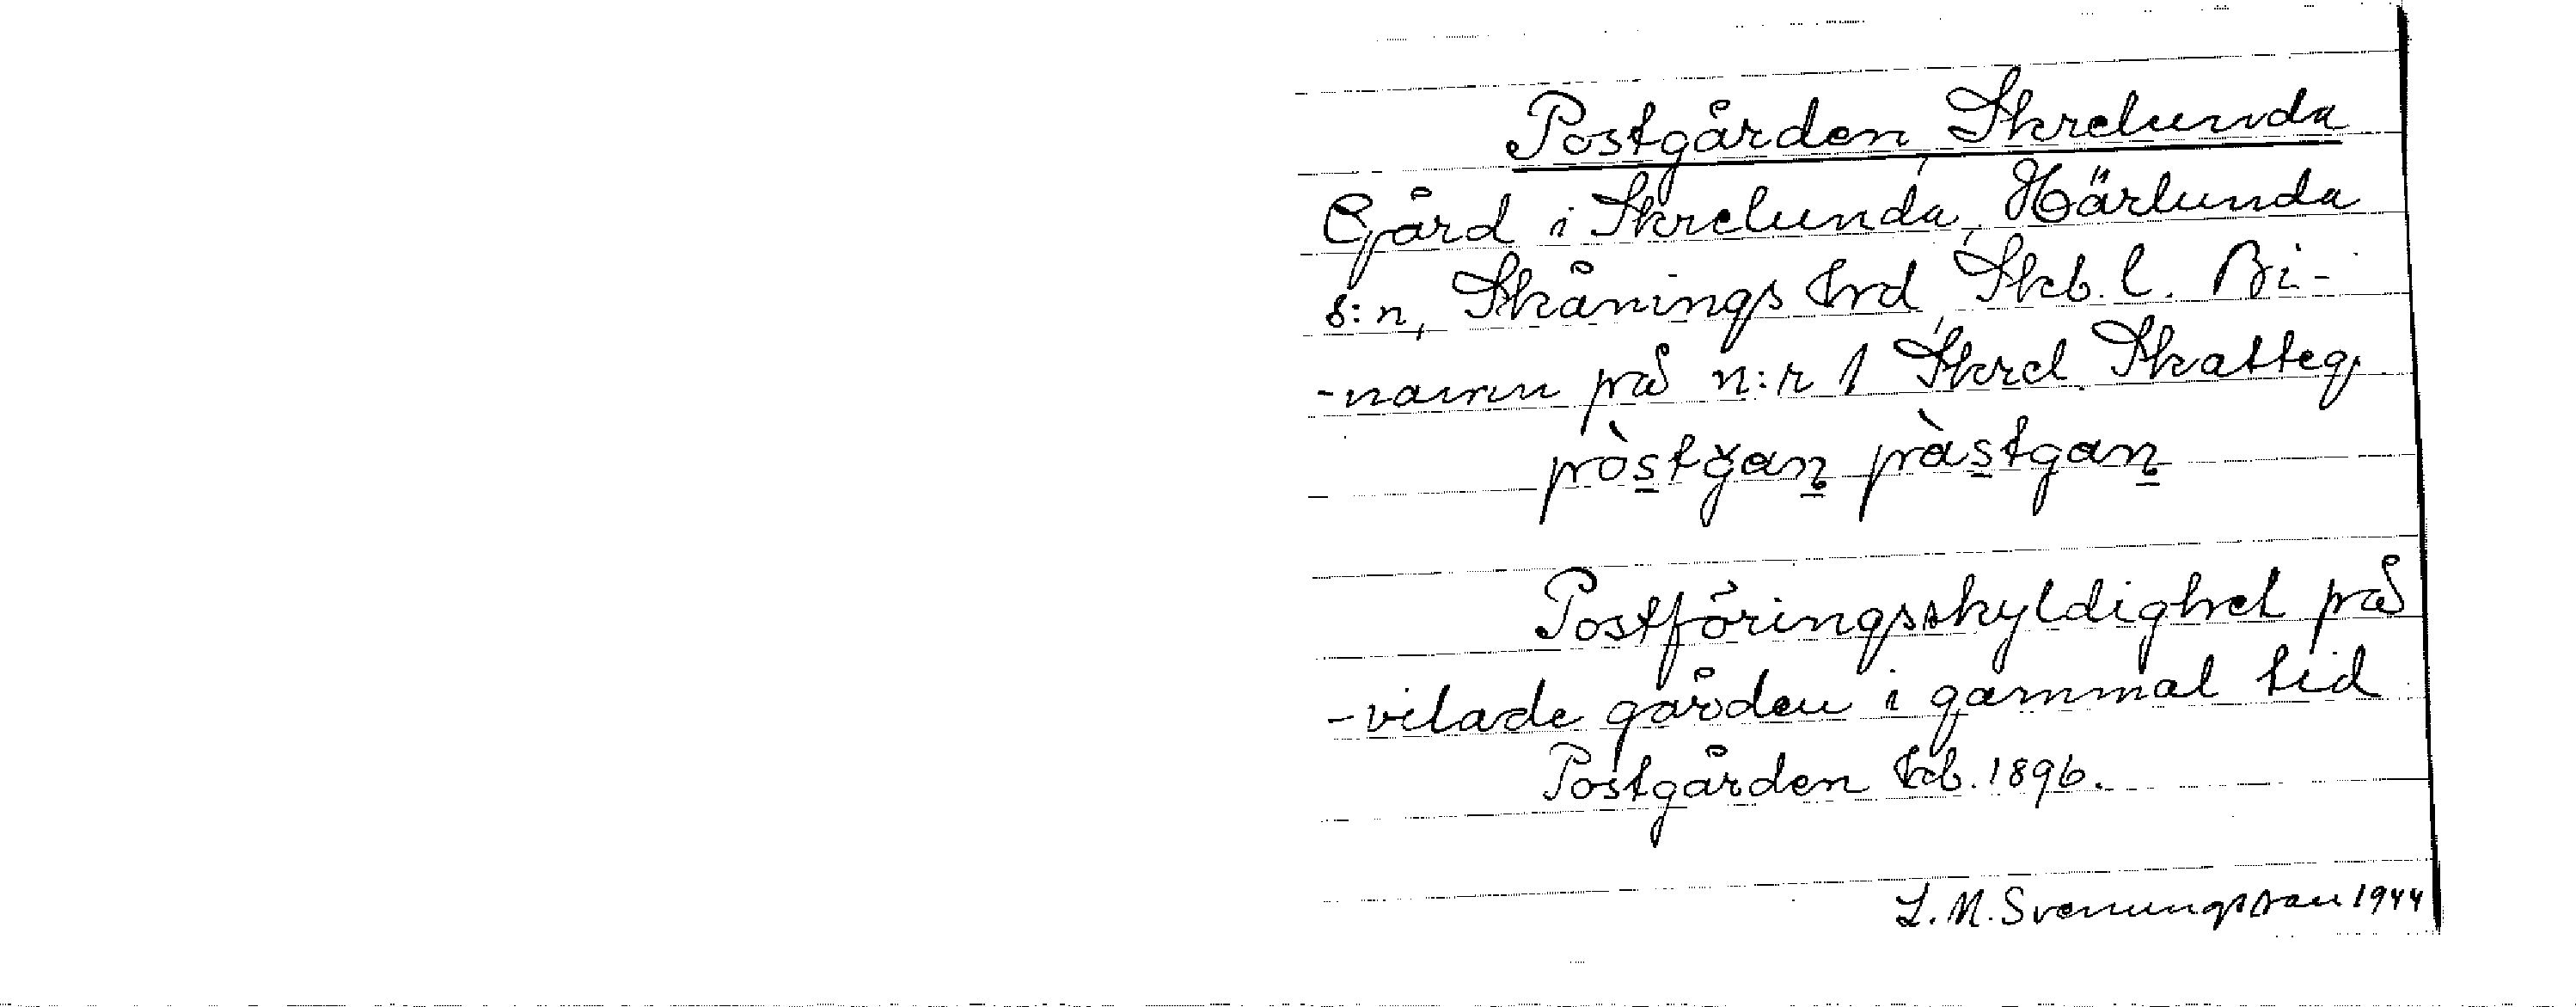 Postgården, Skrelunda
Gård i Skrelunda, Härlunda
s:n, Skånings hrd, Skb. l. Bi-
-namn på n:r 1 Skrel. Skatteg.
pòstgan pàstgan
Postföringsskyldighet på
-vilade gården i gammal tid
Postgården kb. 1896.
L. M. Svenungsson 1944